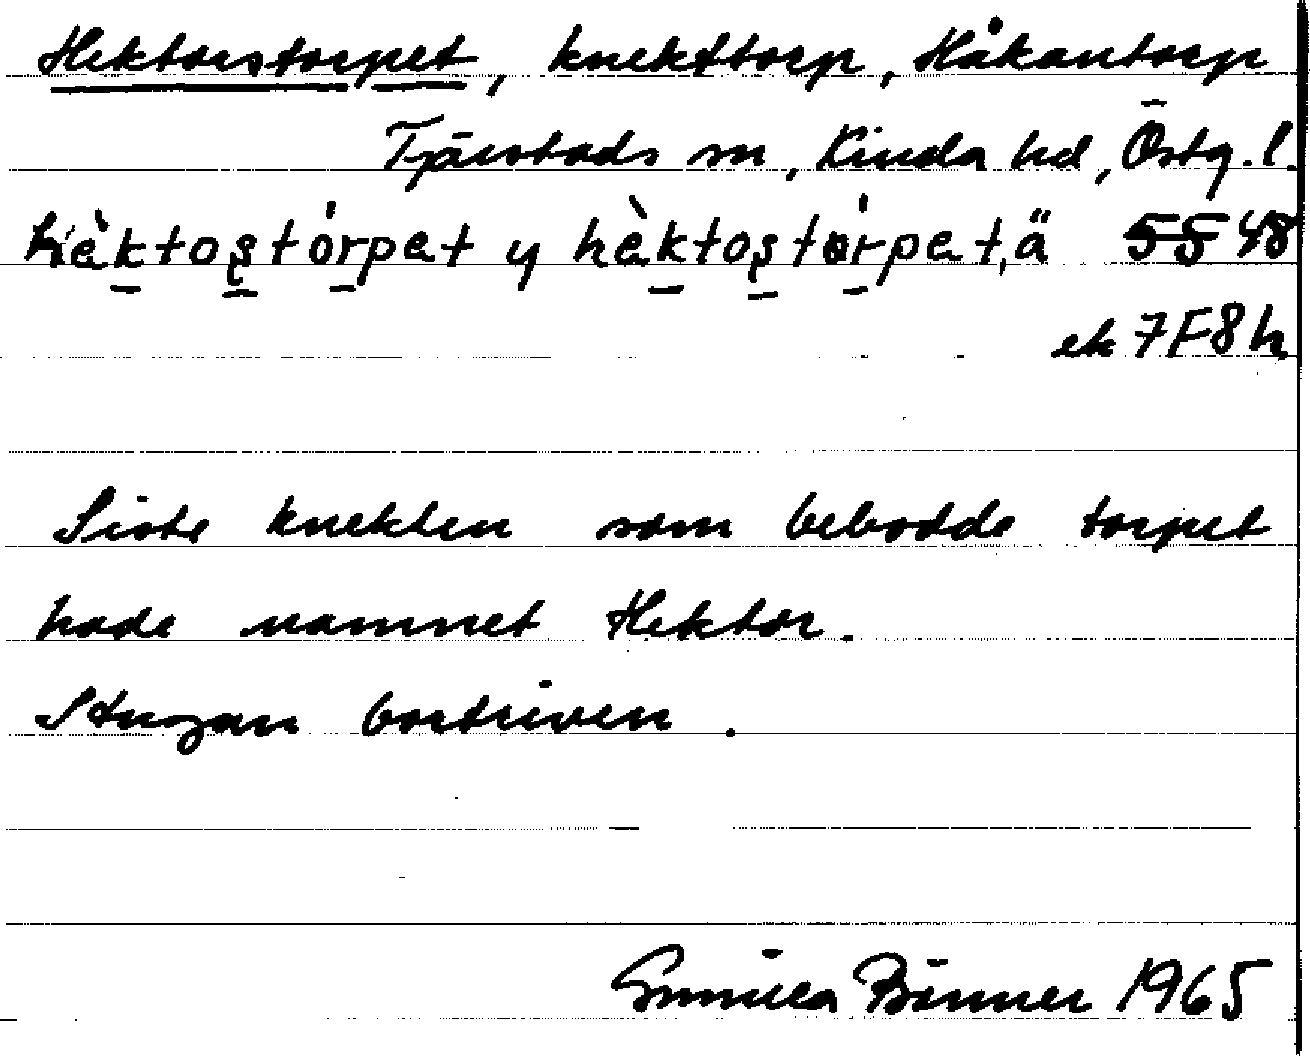 Hektorstorpet, knekttorp, Håkantorp
Tjärstads sn, Kinda hd, Östg. l.
hèktoştórpet y hèktoştórpet, ä 55 48
ek 7F8h
Siste knekten som bebodde torpet
hade namnet Hektor.
Stugan bortriven.
Gunilla Binner 1965